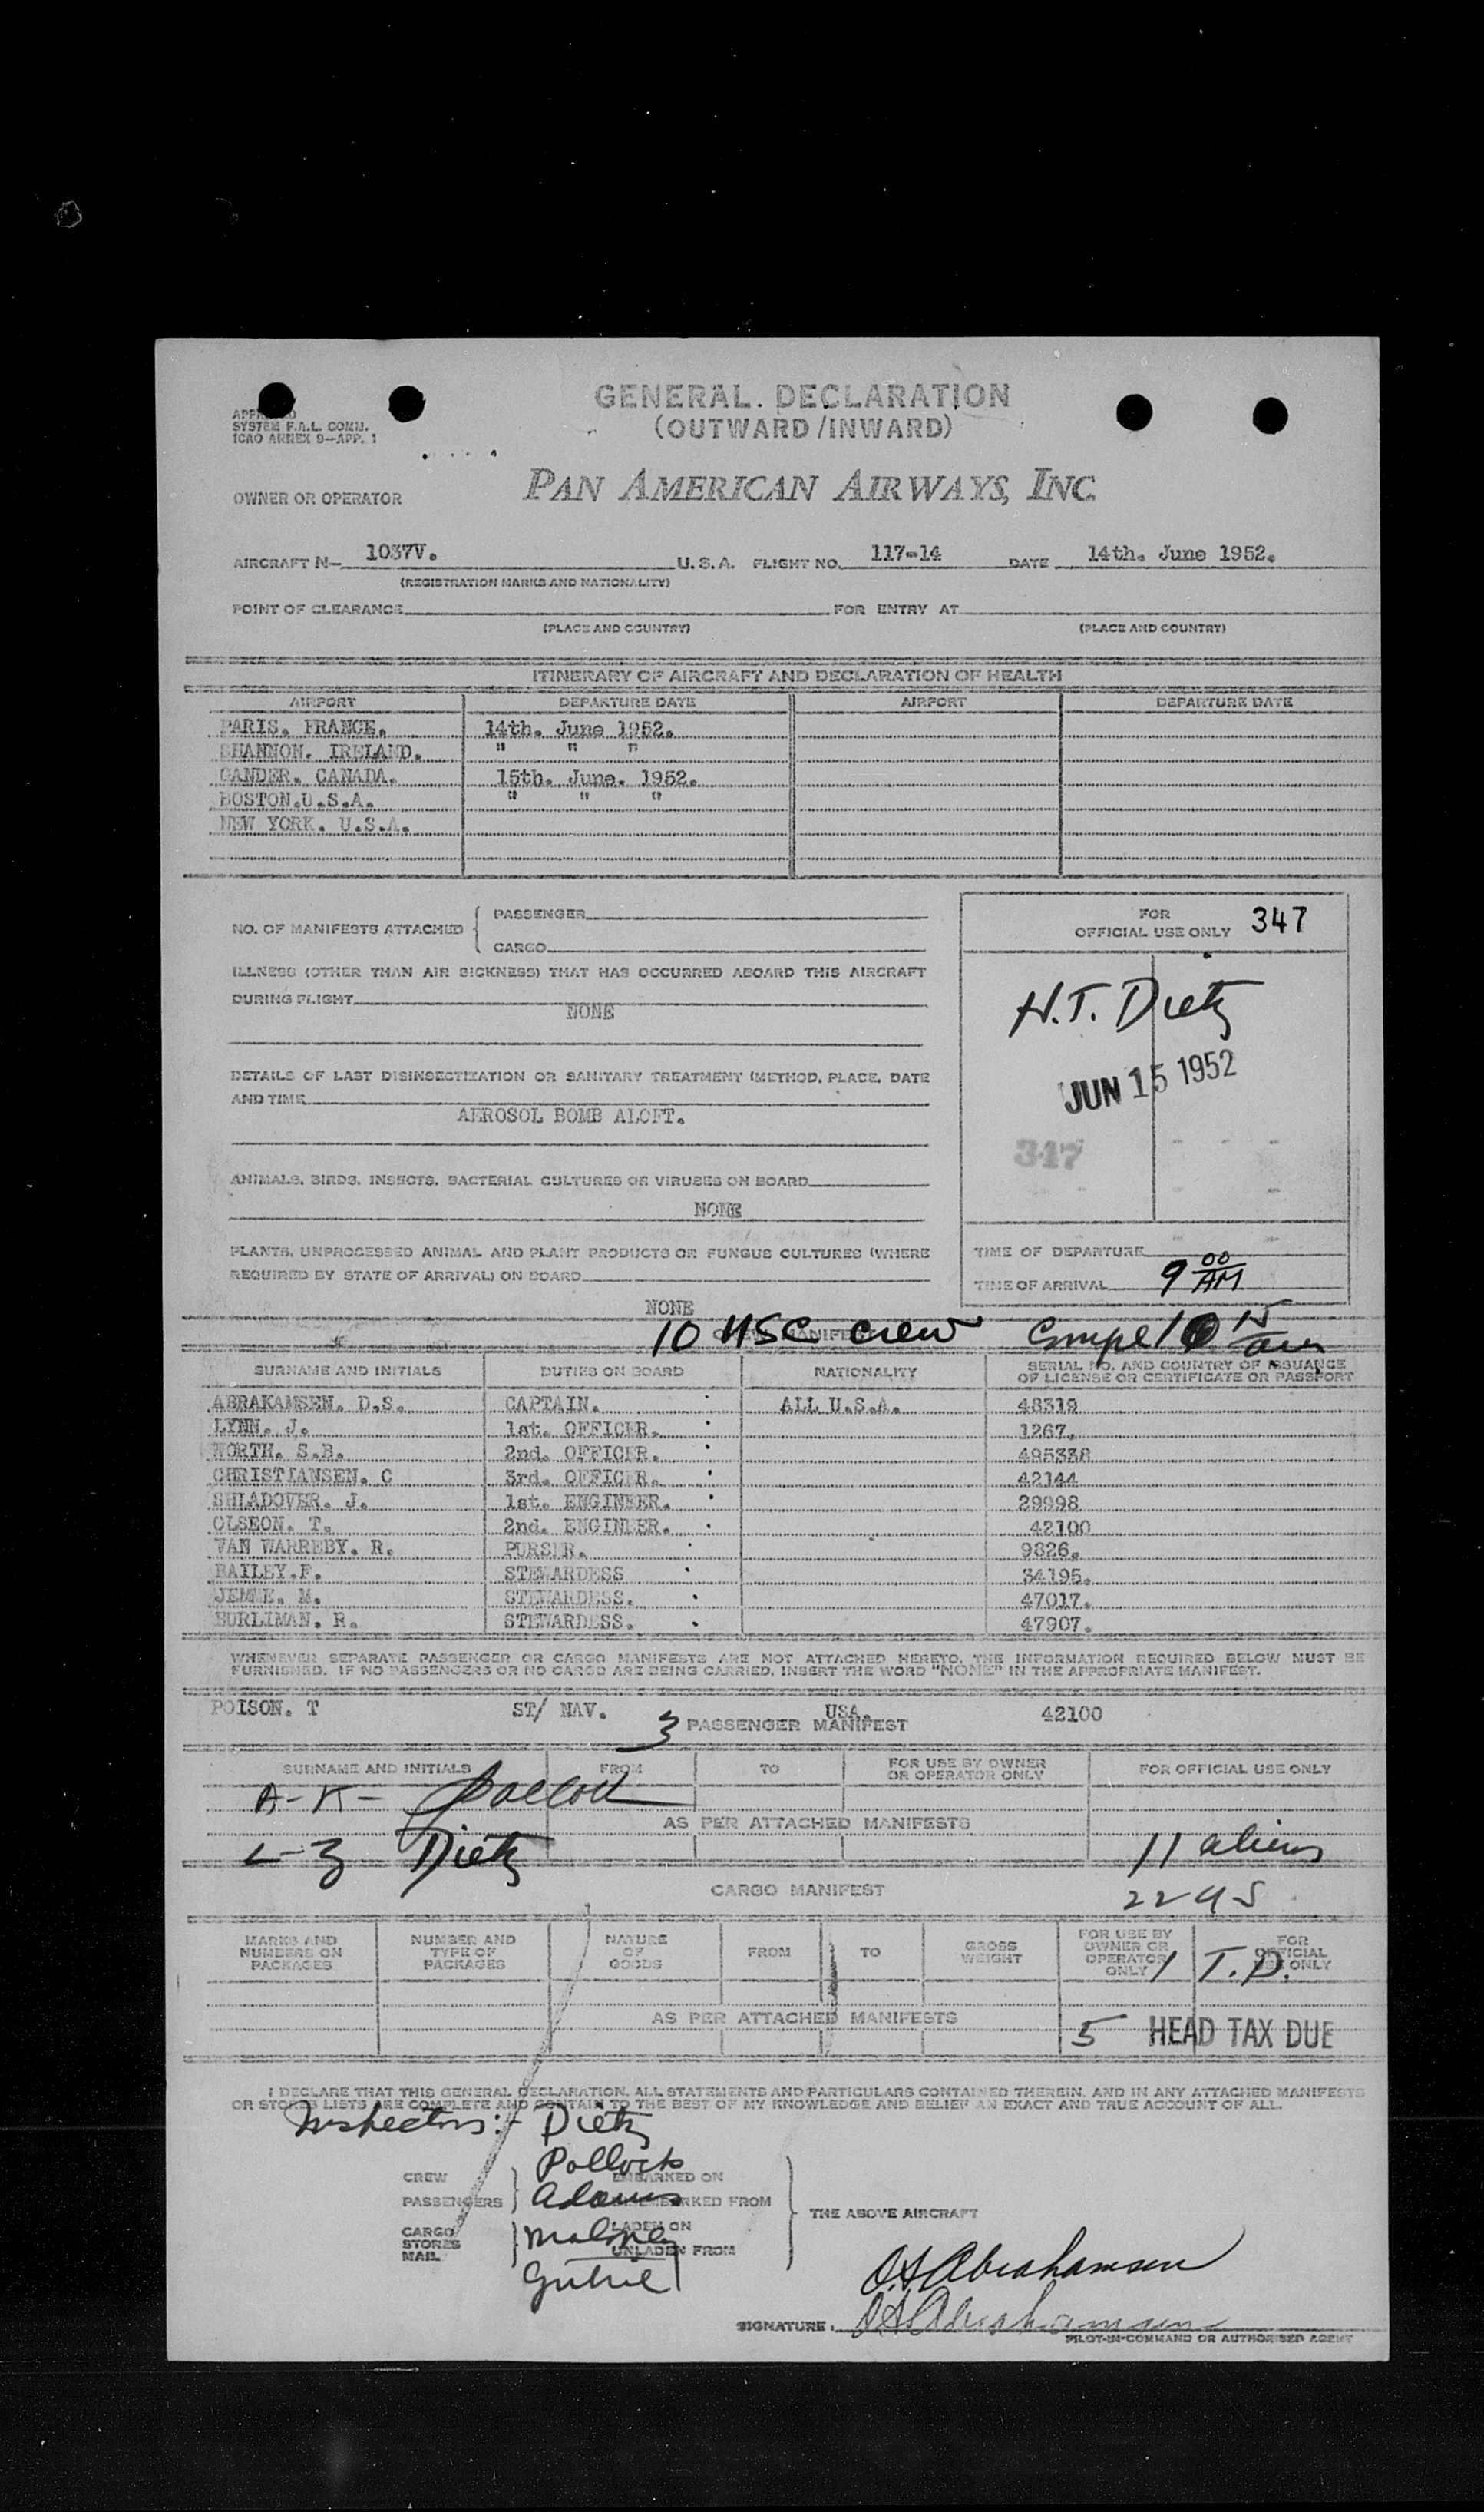 GENERAL. DECLARATION
(OUTWARD/INWARD)
SYSTEM F.A.L. COMM.
ICAO ANNEX 9—APP. 1
OWNER OR OPERATOR PAN AMERICAN AIRWAYS, INC.
AIRCRAFT N— 1037V. U.S.A. FLIGHT NO. 117-14 DATE 14th. June 1952.
(REGISTRATION MARKS AND NATIONALITY)
POINT OF CLEARANCE FOR ENTRY AT
(PLACE AND COUNTRY) (PLACE AND COUNTRY)
ITINERARY OF AIRCRAFT AND DECLARATION OF HEALTH
AIRPORT DEPARTURE DATE AIRPORT DEPARTURE DATE
PARIS. FRANCE. 14th. June 1952.
SHANNON. IRELAND. " " "
GANDER. CANADA. 15th. June. 1952.
BOSTON.U.S.A. " " "
NEW YORK. U.S.A.
NO. OF MANIFESTS ATTACHED PASSENGER
CARGO
FOR
OFFICIAL USE ONLY 347
ILLNESS (OTHER THAN AIR SICKNESS) THAT HAS OCCURRED ABOARD THIS AIRCRAFT
DURING FLIGHT
NONE
H.T. Dietz
JUN 15 1952
347
DETAILS OF LAST DISINSECTIZATION OR SANITARY TREATMENT (METHOD, PLACE, DATE
AND TIME
AEROSOL BOMB ALOFT.
ANIMALS, BIRDS, INSECTS, BACTERIAL CULTURES OR VIRUSES ON BOARD
NONE
PLANTS, UNPROCESSED ANIMAL AND PLANT PRODUCTS OR FUNGUS CULTURES (WHERE
REQUIRED BY STATE OF ARRIVAL) ON BOARD
NONE
TIME OF DEPARTURE
TIME OF ARRIVAL 9 00 AM
10 USC crew Compl
SURNAME AND INITIALS DUTIES ON BOARD NATIONALITY SERIAL NO. AND COUNTRY OF ISSUANCE
OF LICENSE OR CERTIFICATE OR PASSPORT
ABRAKAMSEN. D.S. CAPTAIN. ALL U.S.A. 48319
LYNN. J. 1st. OFFICER. 1267.
NORTH. S.B. 2nd. OFFICER. 495338
CHRISTIANSEN. C 3rd. OFFICER. 42144
SHLADOVER. J. 1st. ENGINEER. 29998
OLSEON. T. 2nd. ENGINEER. 42100
VAN WARREBY. R. PURSER. 9826.
BAILEY.F. STEWARDESS 34195.
JEMNE. M. STEWARDESS. 47017.
BURLIMAN. R. STEWARDESS. 47907.
WHENEVER SEPARATE PASSENGER OR CARGO MANIFESTS ARE NOT ATTACHED HERETO, THE INFORMATION REQUIRED BELOW MUST BE
FURNISHED. IF NO PASSENGERS OR NO CARGO ARE BEING CARRIED, INSERT THE WORD "NONE" IN THE APPROPRIATE MANIFEST.
POISON. T ST/ NAV. USA. 42100
3 PASSENGER MANIFEST
SURNAME AND INITIALS FROM TO FOR USE BY OWNER
OR OPERATOR ONLY FOR OFFICIAL USE ONLY
A-K-
AS PER ATTACHED MANIFESTS
L-Z Dietz 11 aliens
CARGO MANIFEST
22 US
MARKS AND
NUMBERS ON
PACKAGES
NUMBER AND
TYPE OF
PACKAGES
NATURE
OF
GOODS
FROM TO
GROSS
WEIGHT
FOR USE BY
OWNER OR
OPERATOR
ONLY
FOR
OFFICIAL
USE ONLY
1 T.D.
AS PER ATTACHED MANIFESTS
5 HEAD TAX DUE
I DECLARE THAT THIS GENERAL DECLARATION, ALL STATEMENTS AND PARTICULARS CONTAINED THEREIN, AND IN ANY ATTACHED MANIFESTS
OR STORES LISTS ARE COMPLETE AND CONTAIN TO THE BEST OF MY KNOWLEDGE AND BELIEF AN EXACT AND TRUE ACCOUNT OF ALL.
Inspectors:- Dietz
Pollock
CREW EMBARKED ON
PASSENGERS Adams DISEMBARKED FROM
THE ABOVE AIRCRAFT
CARGO LADEN ON
STORES
MAIL UNLADEN FROM
D.S. Abrahamsen
SIGNATURE. D.S. Abrahamsen
PILOT-IN-COMMAND OR AUTHORISED AGENT